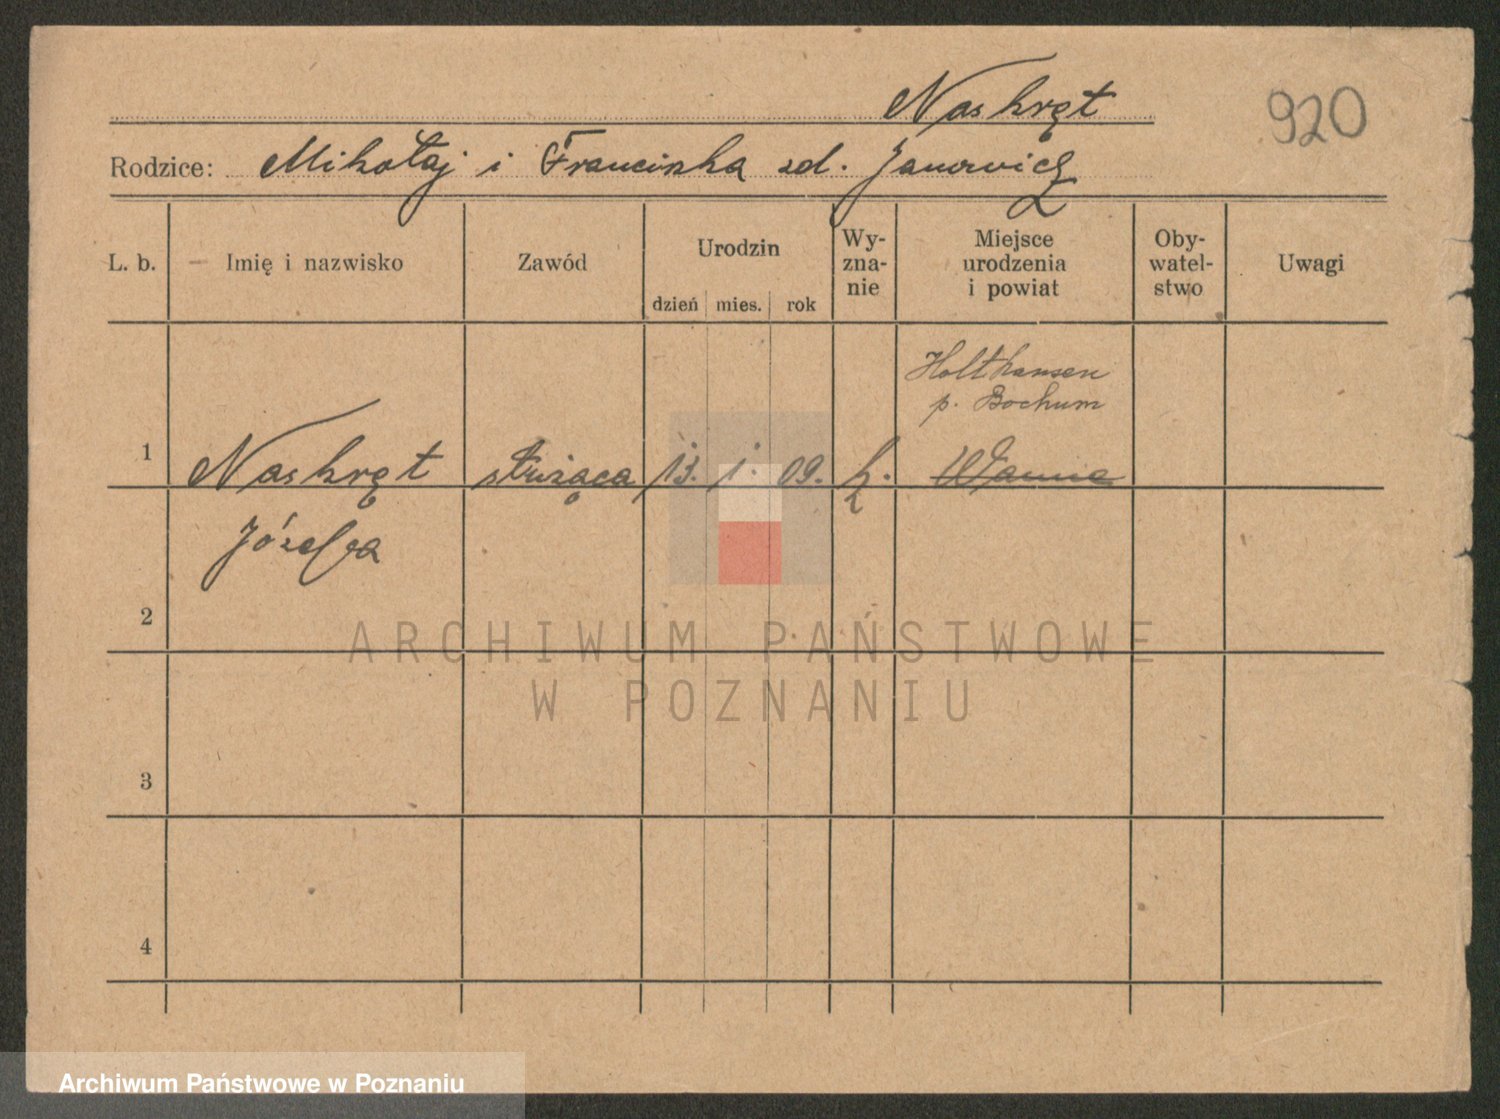 Naskręt
920
Rodzice: Mikołaj i Franciszka zd. Janowicz
L. b. Imię i nazwisko Zawód Urodzin dzień mies. rok Wy-zna-nie Miejsce urodzenia i powiat Oby-watel-stwo Uwagi
Holthausen
p. Bochum
1 Naskręt służąca 13. 1. 09. k. Wanne
Józefa
2
ARCHIWUM PAŃSTWOWE
W POZNANIU
3
4
Archiwum Państwowe w Poznaniu